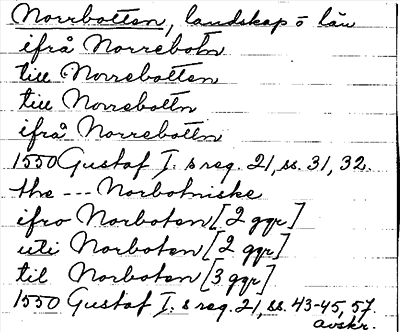 Norrbotten, landskap o län
ifrå Norrebotn
till Norrebotten
till Norrebottn
ifrå Norrebottn
1550 Gustaf I:s reg. 21, ss. 31, 32.
the --- Norbotniske
ifro Norboten [2 ggr]
uti Norboten [2 ggr]
til Norboten [3 ggr]
1550 Gustaf I:s reg. 21, ss. 43-45, 57.
avskr.